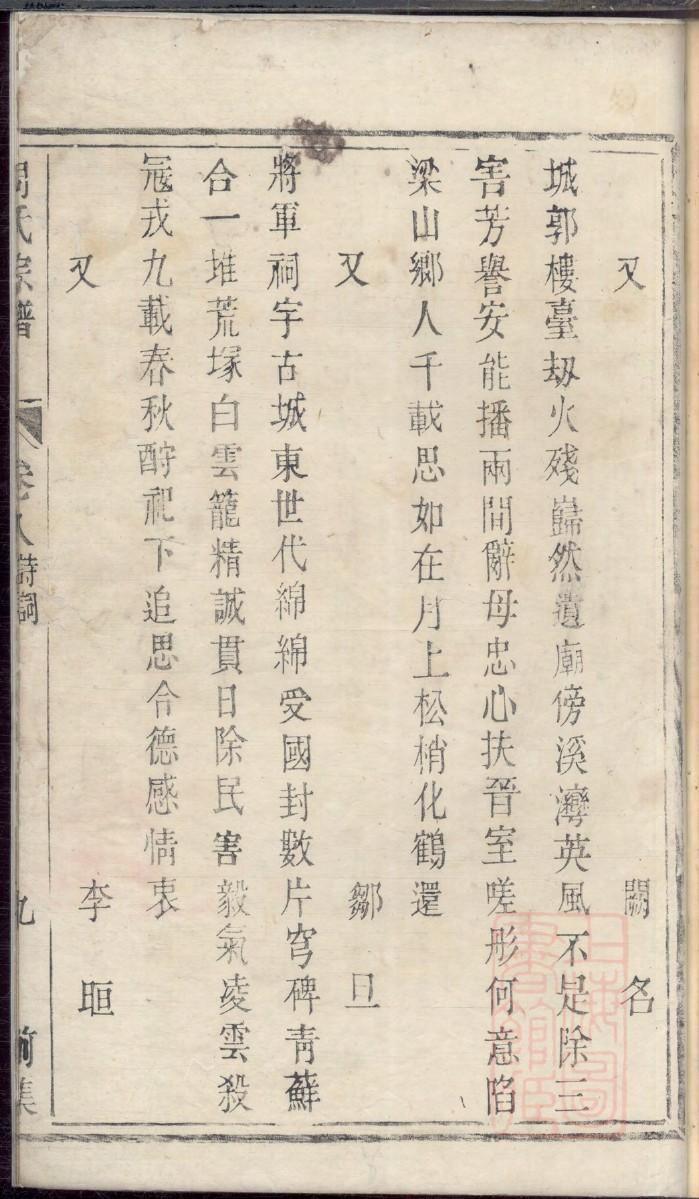 又 闕名
城郭樓臺刼火殘巋然遺廟傍溪灣英風不足除三
害芳譽安能播兩間辭母忠心扶晉室嗟彤何意陷
梁山鄉人千載思如在月上松梢化鶴還
又 鄒旦
將軍祠宇古城東世代綿綿受國封數片穹碑青蘚
合一堆荒塚白雲籠精誠貫日除民害毅氣凌雲殺
冦戎九載春秋酹祀下追思合德感情衷
又 李晅
周氏宗譜 卷八 詩詞 九